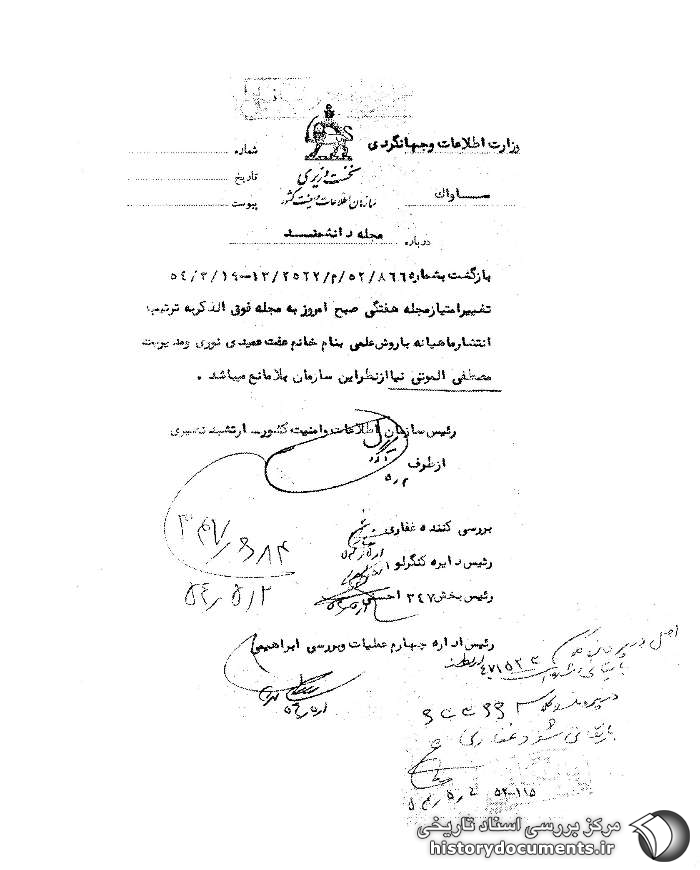 وزارت اطلاعات وجهانگردی
نخست وزیری
سازمان اطلاعات و امنیت کشور
ساواک
شماره
تاریخ
پیوست
درباره مجله دانشمند
بازگشت بشماره ۵۴/۳/۱۹-۱۲/۲۵۲۲/م/۵۲/۸۶۶
تغییرامتیازمجله هفتگی صبح امروز به مجله فوق الذکربه ترتیب
انتشارماهیانه باروش علمی بنام خانم عفت عمیدی نوری ومدیریت
مصطفی الموتی نیاازنظراین سازمان بلامانع میباشد .
رئیس سازمان اطلاعات وامنیت کشور_ ارتشبد نصیری
ازطرف
بررسی کننده غفاری
رئیس دایره کنگرلو
رئیس بخش ۳۴۷ احسنی
رئیس اداره چهارم عملیات وبررسی ابراهیمی
۳۴۷/۶۸۴
۵۴/۵/۲
اصل در پرونده
بایگانی شود
۴۷۱۵۲۲
در پرونده
بایگانی شود غفاری
۵۲-۱۱۵
مرکز بررسی اسناد تاریخی
historydocuments.ir